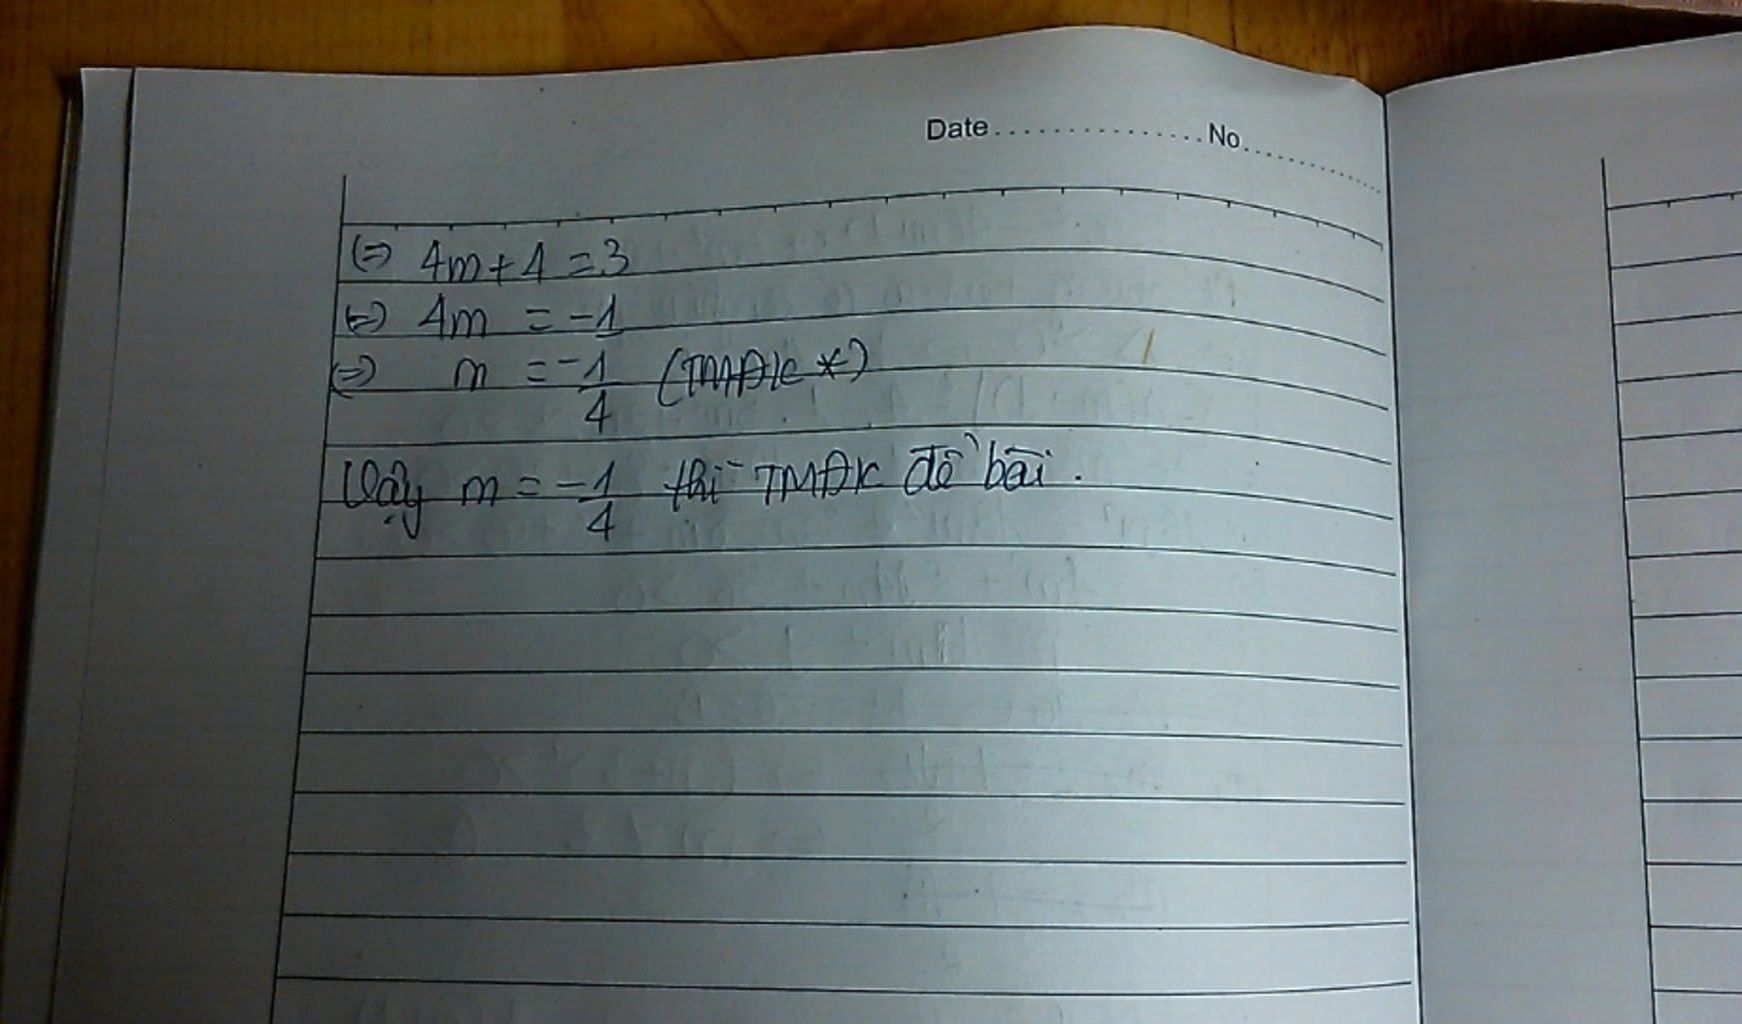 Date...............No............
(=) 4m + 4 = 3
(=) 4m = -1
(=) m = -1/4 (TMĐK *)
Vậy m = -1/4 thì TMĐK đề bài.